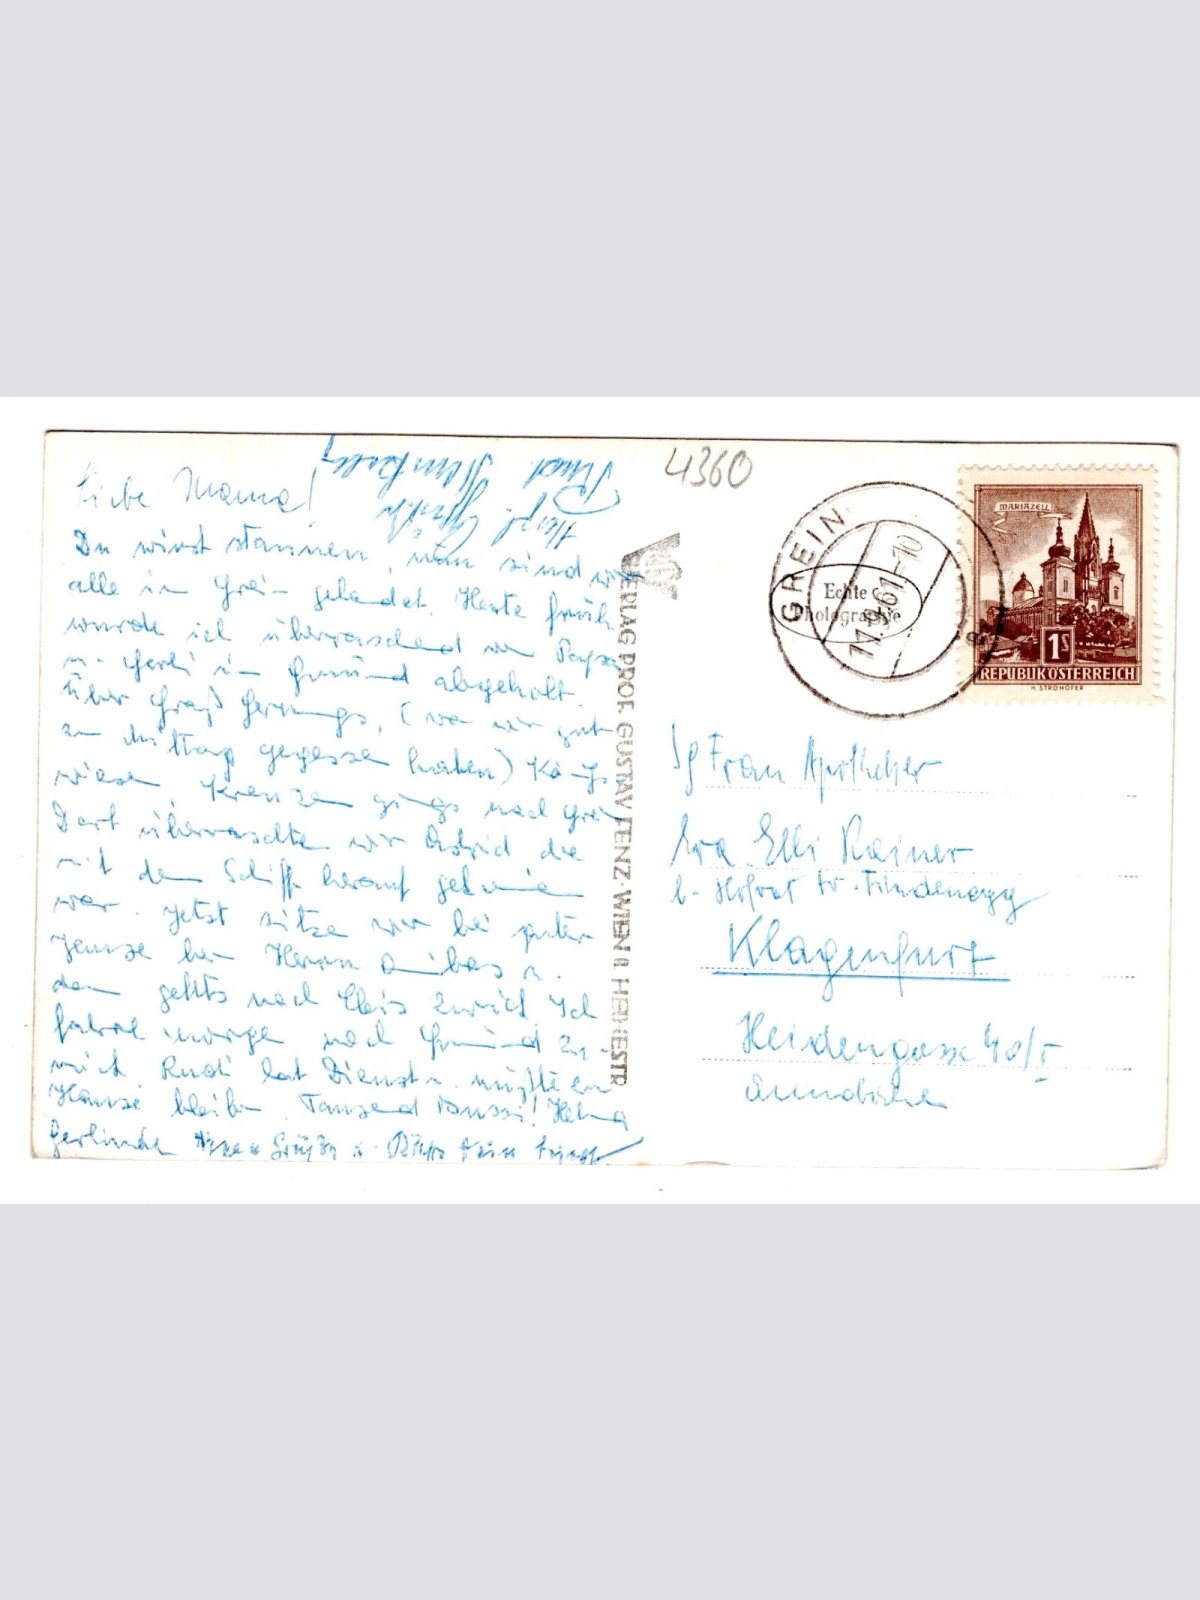 4360
Liebe Mama!
Du wirst staunen, nun sind wir
alle in Grein gelandet. Heute früh
wurde ich überraschend von Papa
u. Gerli in Gmünd abgeholt.
Über Groß Gerungs, (wo wir gut
zu Mittag gegessen haben) Königs
wiesen Kreuzen gings nach Grein
Dort überraschten wir Astrid die
mit dem Schiff herauf gekommen
war. Jetzt sitzen wir bei guter
Jause bei Herrn u.
dann gehts nach zurück Ich
fahre morgen nach Gmünd zu-
rück Rudi hat Dienst u. mußte zu
Hause bleiben. Tausend Bussi! Helma
Gerlinde Grüße u. Dein
Herzl. Grüße
VERLAG PROF. GUSTAV FENZ·WIEN II. HEINESTR.
Echte
Photographie
GREIN
11.9.61-10
a
MARIAZELL
1S
REPUBLIK ÖSTERREICH
H. STROHOFER
Frau Apotheker
Elli Rainer
b. Hofrat
Klagenfurt
Heidengasse 40/I